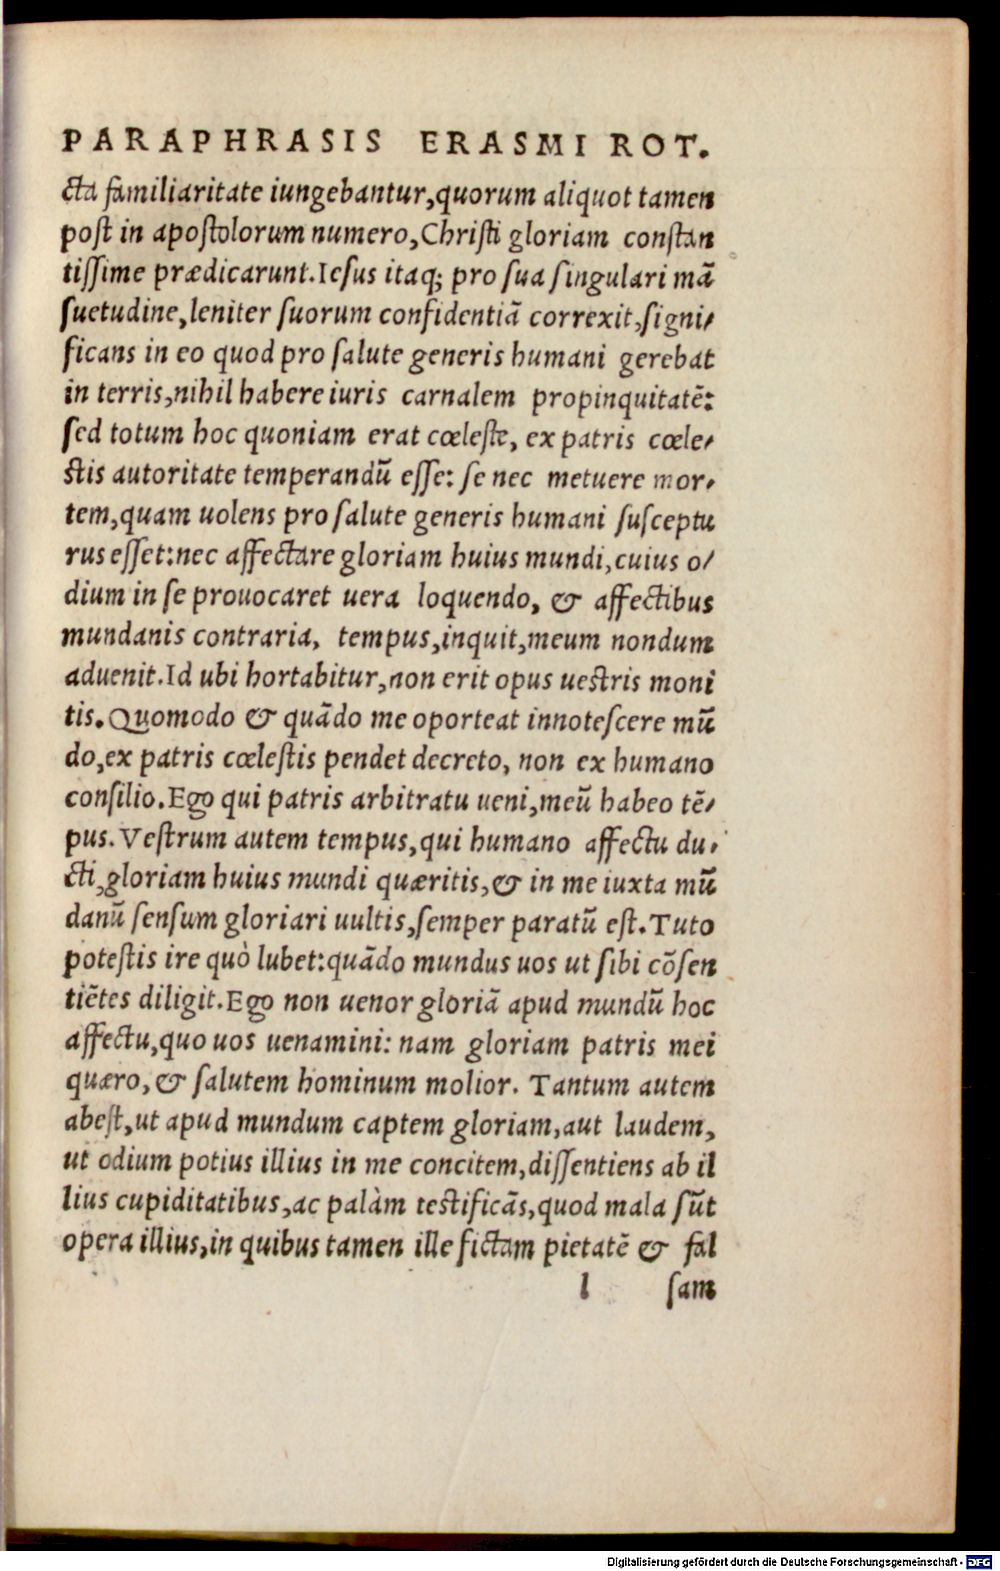 PARAPHRASIS ERASMI ROT.
cta familiaritate iungebantur,quorum aliquot tamen
post in apostolorum numero,Christi gloriam constan
tissime prædicarunt.Iesus itaq; pro sua singulari mã
suetudine,leniter suorum confidentiã correxit,signi/
ficans in eo quod pro salute generis humani gerebat
in terris,nihil habere iuris carnalem propinquitatẽ:
sed totum hoc quoniam erat cœleste, ex patris cœle/
stis autoritate temperandũ esse: se nec metuere mor/
tem,quam uolens pro salute generis humani susceptu
rus esset:nec affectare gloriam huius mundi,cuius o/
dium in se prouocaret uera loquendo, & affectibus
mundanis contraria, tempus,inquit,meum nondum
aduenit.Id ubi hortabitur,non erit opus uestris moni
tis.Quomodo & quãdo me oporteat innotescere mũ
do,ex patris cœlestis pendet decreto, non ex humano
consilio.Ego qui patris arbitratu ueni,meũ habeo tẽ/
pus.Vestrum autem tempus,qui humano affectu du/
cti,gloriam huius mundi quæritis,& in me iuxta mũ
danũ sensum gloriari uultis,semper paratũ est.Tuto
potestis ire quò lubet:quãdo mundus uos ut sibi cõsen
tiẽtes diligit.Ego non uenor gloriã apud mundũ hoc
affectu,quo uos uenamini: nam gloriam patris mei
quæro,& salutem hominum molior. Tantum autem
abest,ut apud mundum captem gloriam,aut laudem,
ut odium potius illius in me concitem,dissentiens ab il
lius cupiditatibus,ac palàm testificãs,quod mala sũt
opera illius,in quibus tamen ille fictam pietatẽ & fal
l sam
Digitalisierung gefördert durch die Deutsche Forschungsgemeinschaft - DFG